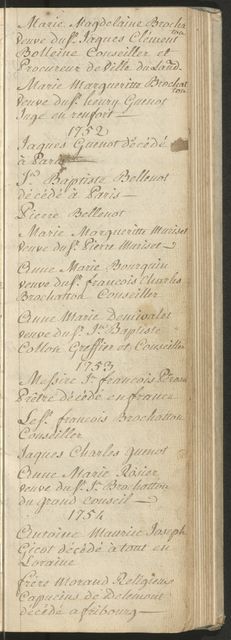 Marie Magdelaine Brochatton
veuve du sr. Jaques Clément
Bolleine Conseiller et
Procureur de Ville du Lind.
Marie Margueritte Brochatton
veuve du sr. henry Guenot
Juge en renfort
1752
Jaques Guenot décédé
à Paris
Jn. Baptiste Bellenot
décédé à Paris
Pierre Bellenot
Marie Margueritte Muriset
veuve du sr. Pierre Muriset
Anne Marie Bourquin
veuve du sr. francois Charles
Brochatton Conseiller
Anne Marie
veuve du sr. Jn. Baptiste
Collon Greffier et Conseiller
1753
Messire Jn. francois
Prêtre décédé en france
Le sr. francois Brochatton
Conseiller
Jaques Charles
Anne Marie Rosier
veuve du sr. Jn. Brochatton
du grand Conseil
1754
Antoine Maurice Joseph
Gicot décédé à toul en
Loraine
frère Morand Religieux
Capucins de Delemont
décédé a fribourg